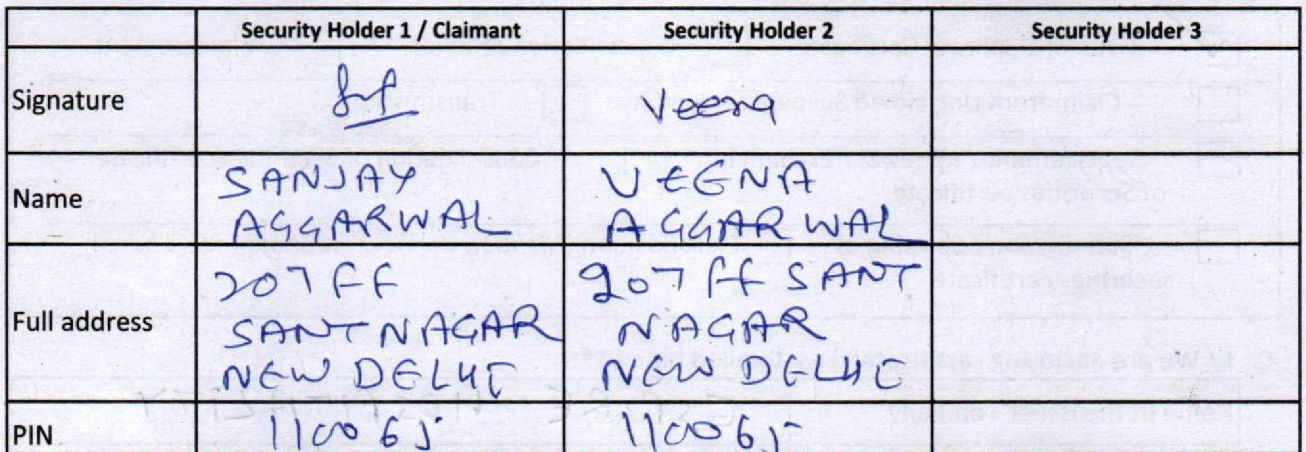 Security Holder 1 / Claimant Security Holder 2 Security Holder 3
Signature Veena
Name SANJAY AGGARWAL VEENA AGGARWAL
Full address 207 FF SANT NAGAR NEW DELHI 207 FF SANT NAGAR NEW DELHI
PIN 110065 110065